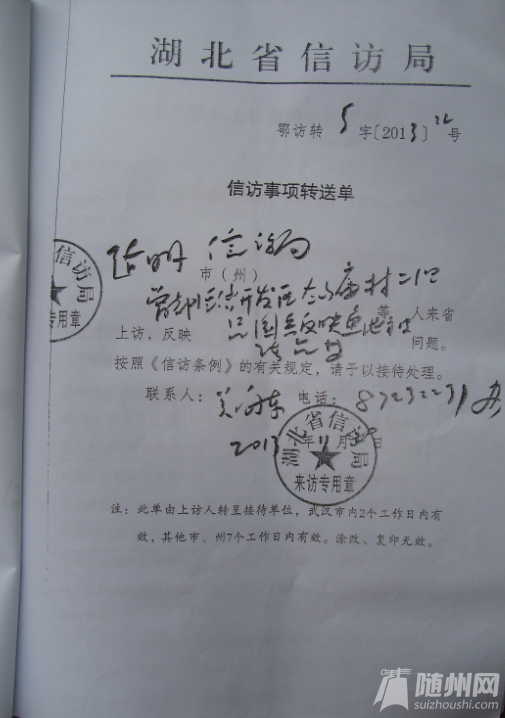 湖北省信访局
鄂访转 5 字[2013] 22 号
信访事项转送单
信访局
市(州)
信访局
专用章
经济开发区 村二组
等 人来省
上访,反映 问题。
按照《信访条例》的有关规定,请予以接待处理。
联系人: 电话:87232231
2013 年 11 月 日
湖北省信访局
来访专用章
注:此单由上访人转呈接待单位,武汉市内2个工作日内有
效,其他市、州7个工作日内有效。涂改、复印无效。
随州网
suizhoushi.com